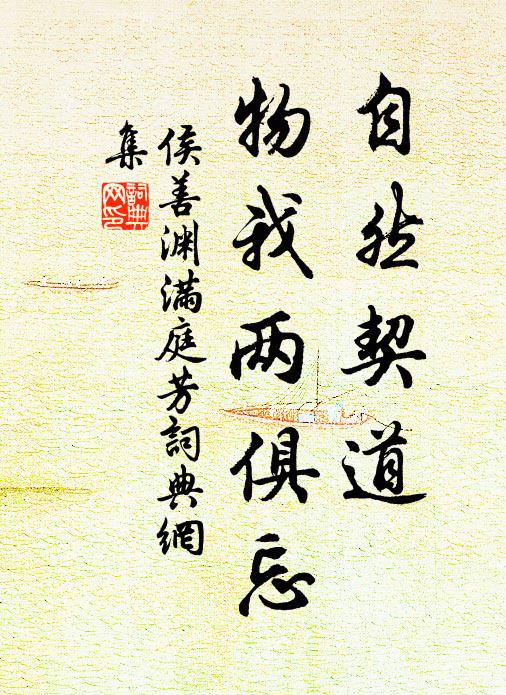 自然契道
物我两俱忘
侯善渊满庭芳词典網
集
詞典网印